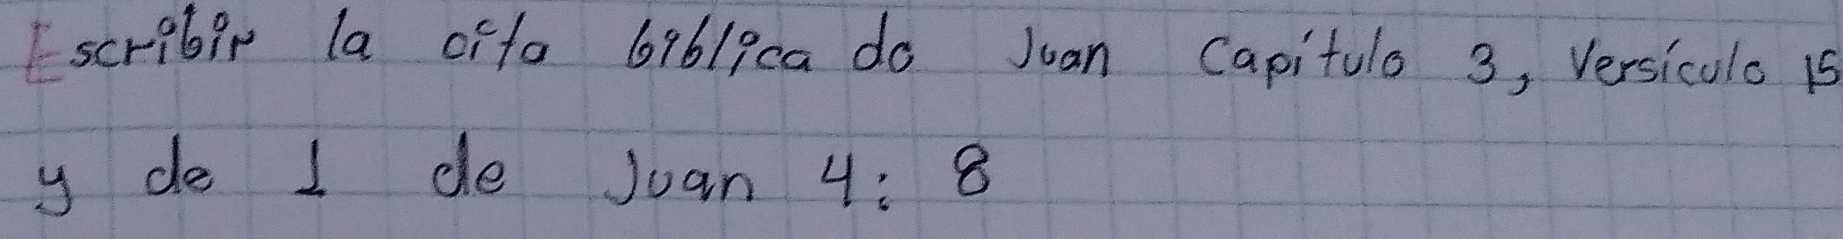 Escribir la cita bíblica de Juan Capítulo 3, Versículo 15
y de 1 de Juan 4: 8